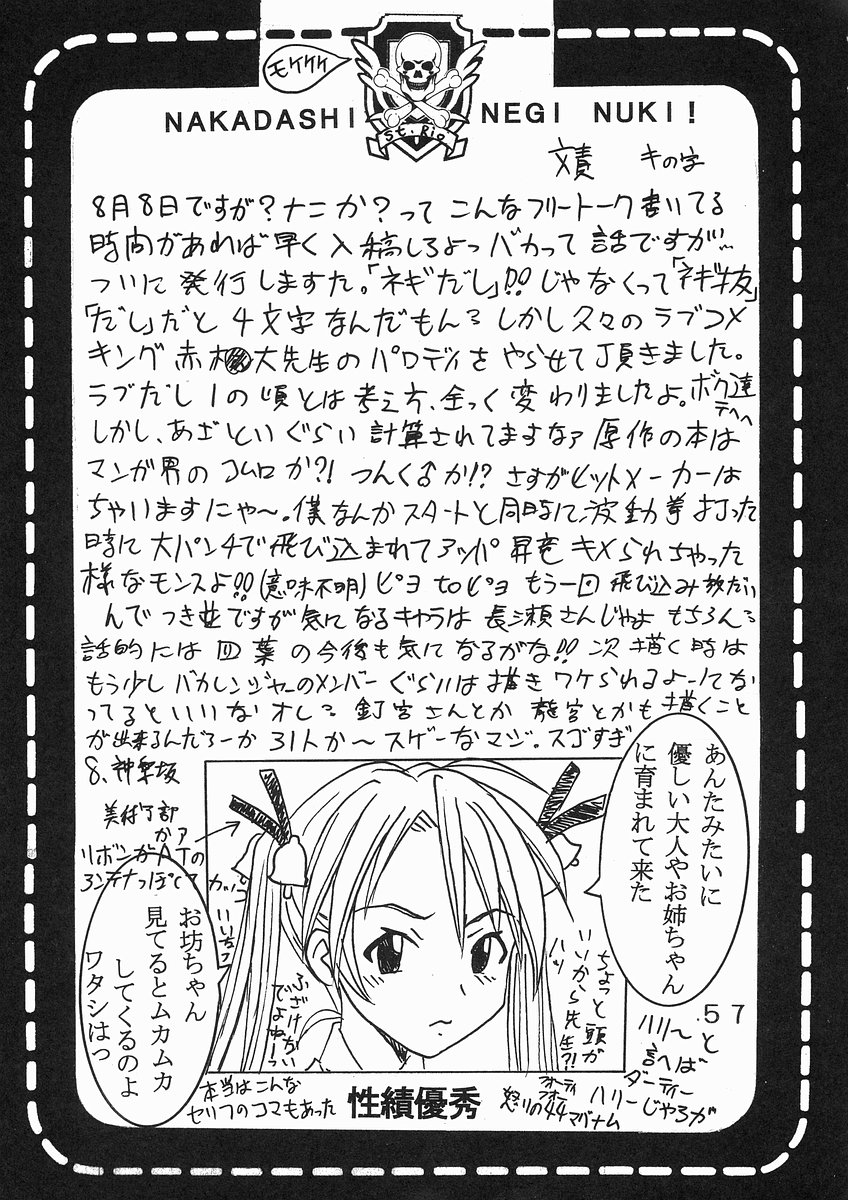 モケケケ
NAKADASHI NEGI NUKI!
St. Rio
文責 キの字
8月8日ですが?ナニか?って こんなフリートーク書いてる
時間があれば早く入稿しろよっバカって話ですが…
ついに発行しますた。「ネギだし」!!じゃなくって「ネギ抜」
「だし」だと4文字なんだもん。しかし久々のラブコメ
キング赤松大先生のパロディをやらせて頂きました。
ラブだし1の頃とは考え方、全っく変わりましたよ。ボク達
テヘヘ
しかし、あざといぐらい計算されてますなァ原作の本は
マンガ界のコムロか?!つんく♂か!?さすがヒットメーカーは
ちゃいますにゃ〜。僕なんかスタートと同時に波動拳打った
時に大パンチで飛び込まれてアッパ昇竜キメられちゃった
様なモンスよ!!(意味不明)ピヨtoピヨもう一回飛び込み放だい
んでつき並ですが気になるキャラは長瀬さんじゃよもちろん
話的には四葉の今後も気になるがな!!次描く時は
もう少しバカレンジャーのメンバーぐらいは描きワケられるよーにな
ってるといいなオレ 釘宮さんとか龍宮とかも描くこと
が出来るんだろーか31人か〜スゲーなマジ。スゴすぎ
8、神楽坂
美術部
かァ
リボンがATの
アンテナっぽくて
カッコ
いいなァ
あんたみたいに
優しい大人やお姉ちゃん
に育まれて来た
お坊ちゃん
見てるとムカムカ
してくるのよ
ワタシはっ
ちょっと頭が
いいから先生?!
ハッ
ふざけない
でよねーっ
本当はこんな
セリフのコマもあった
性績優秀
57
ハリーと
言へば
ダーティー
ハリーじゃろが
怒りの44マグナム
フォーティ
フォー